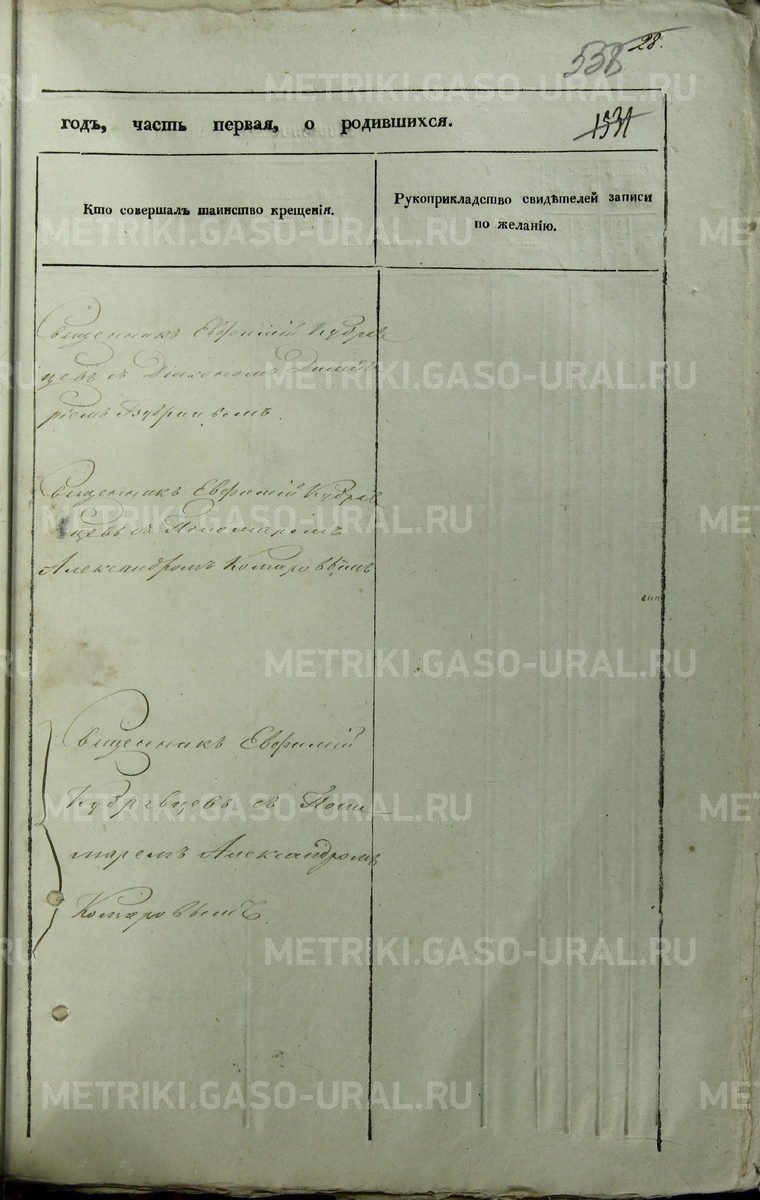 538
28.
годъ, часть первая, о родившихся.
1531
Кто совершалъ таинство крещенія.
Рукоприкладство свидѣтелей записи
по желанію.
Священникъ Евфимій Кудряв
цевъ съ Діакономъ Димит
ріемъ
Священникъ Евфимій Кудряв
цевъ съ Пономаремъ
Александромъ Комаровымъ
Священникъ Евфимій
Кудрявцевъ съ Поно
маремъ Александромъ
Комаровымъ
METRIKI.GASO-URAL.RU